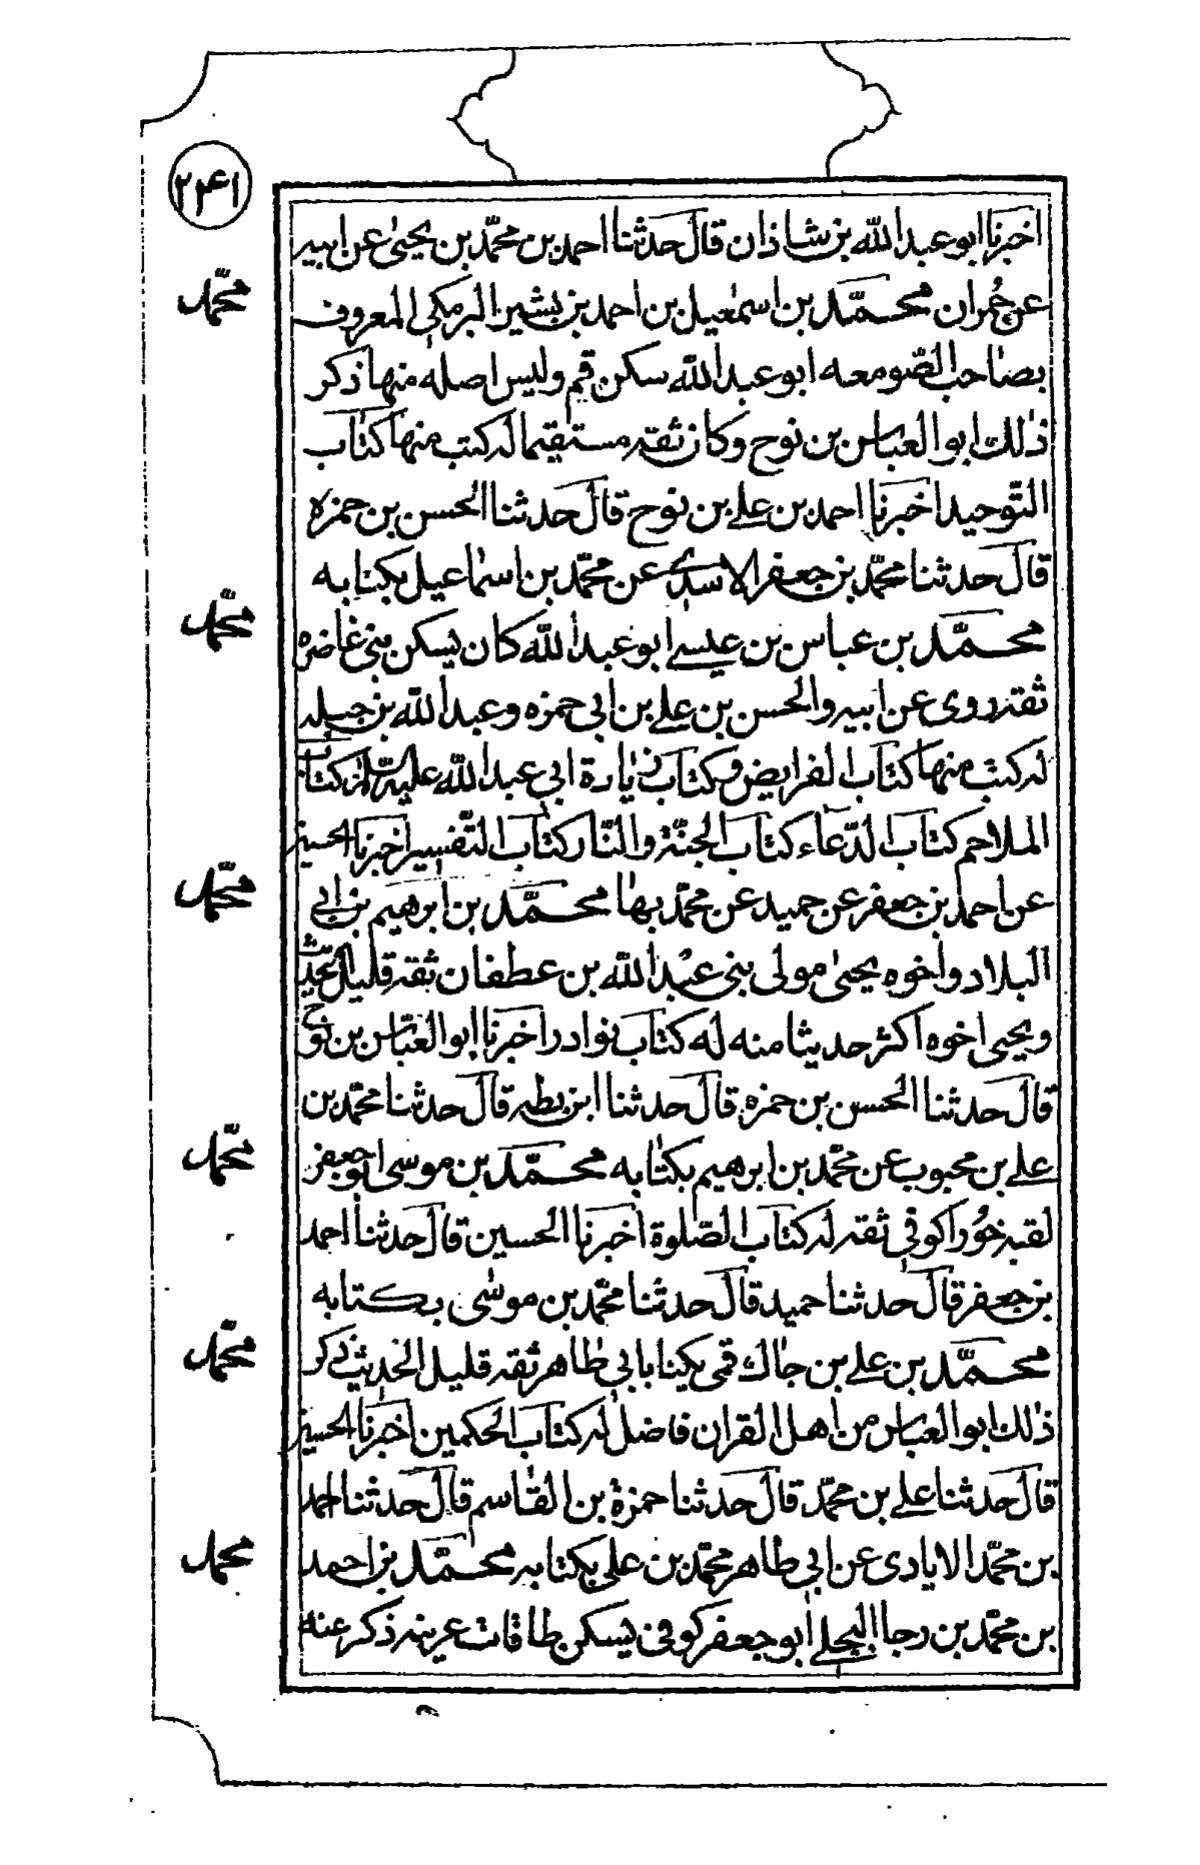 ٢٤١
اخبرنا ابو عبد الله بن شاذان قال حدثنا احمد بن محمّد بن يحيىٰ عن ابيه
محمّد
عن حُمران محمّد بن اسمٰعيل بن احمد بن بشير البرمكى المعروف
بصاحب الصّومعه ابو عبد الله سكن قم وليس اصله منها ذكر
ذٰلك ابو العباس بن نوح وكان ثقه مستقيما له كتب منها كتاب
التّوحيد اخبرنا احمد بن على بن نوح قال حدثنا الحسن بن حمزه
قال حدثنا محمّد بن جعفر الاسدى عن محمّد بن اسماعيل بكتابه
محمّد
محمّد بن عباس بن عيسے ابو عبد الله كان يسكن بنى غاضره
ثقه روى عن ابيه والحسن بن على بن ابى حمزه وعبد الله بن جبله
له كتب منها كتاب الفرايض وكتاب زيارة ابى عبد الله عليه السّلم كتاب
الملاحم كتاب الدّعاء كتاب الجنّة والنّار كتاب التّفسير اخبرنا الحسين
محمّد
عن احمد بن جعفر عن حميد عن محمّد بها محمّد بن ابرهيم بن ابى
البلاد واخوه يحيىٰ مولى بنى عبْد الله بن عطفان ثقه قليل الحديث
ويحيى اخوه اكثر حديثا منه له كتاب نوادر اخبرنا ابو العبّاس بن نوح
قال حدثنا الحسن بن حمزه قال حدثنا ابن بطه قال حدثنا محمّد بن
محمّد
على بن محبوب عن محمّد بن ابرهيم بكتابه محمّد بن موسى ابو جعفر
لقبه خُورا كوفى ثقه له كتاب الصّلوة اخبرنا الحسين قال حدثنا احمد
بن جعفر قال حدثنا حميد قال حدثنا محمّد بن موسٰى بكتابه
محمّد
محمّد بن على بن جاك قمى يكنا بابى طاهر ثقه قليل الحديث ذكر
ذٰلك ابو العباس من اهل القران فاضل له كتاب الحكمين اخبرنا الحسين
قال حدثنا على بن محمّد قال حدثنا حمزة بن القاسم قال حدثنا احمد
محمد
بن محمّد الايادى عن ابى طاهر محمّد بن على بكتابه محمّد بن احمد
بن محمّد بن رجا البجلے ابو جعفر كوفى يسكن طاقات عرينه ذكر عنه